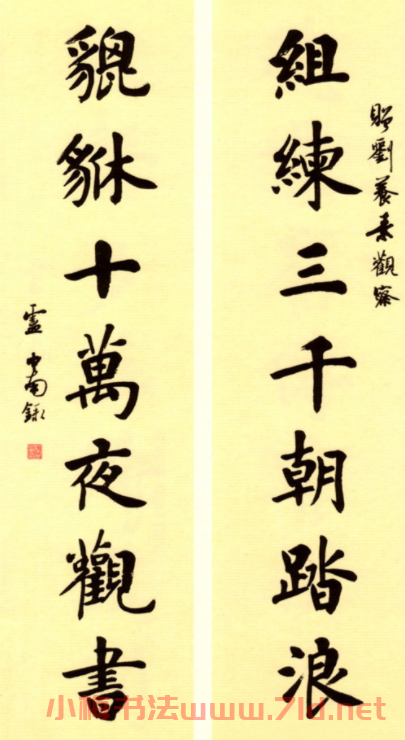 贈劉養素觀察
組練三千朝踏浪
貔貅十萬夜觀書
小楷书法www.71d.net